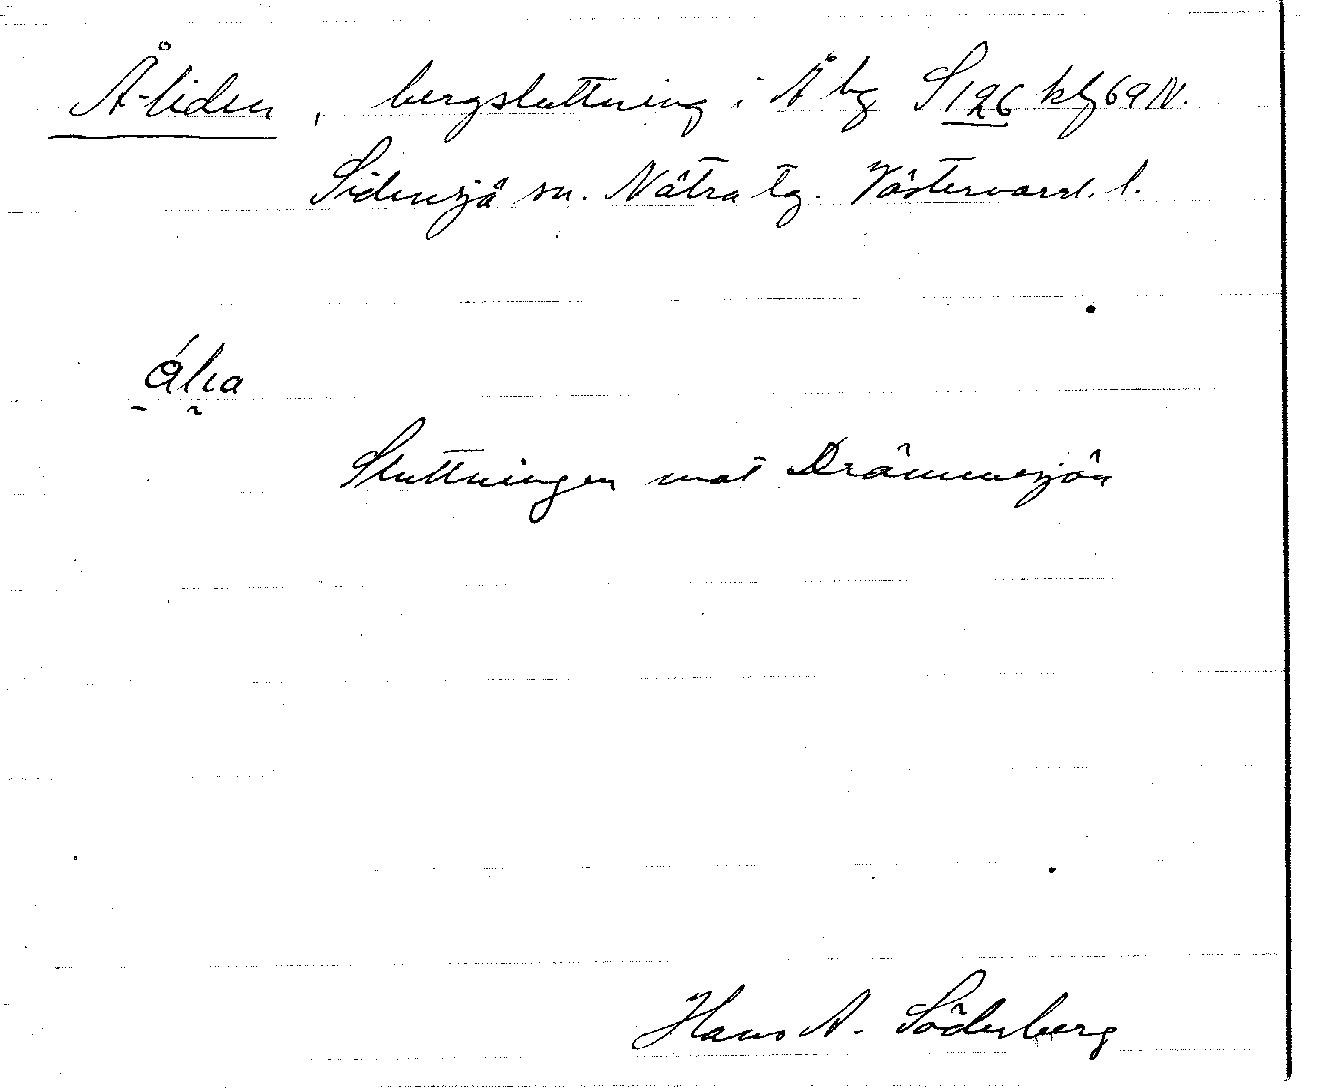 Å-liden, bergsluttning i Å by S 126 kbl 69 N.
Sidensjö sn. Nätra tg. Västernorrl. l.
Sluttningen mot Drömmesjön
Hans A. Söderberg